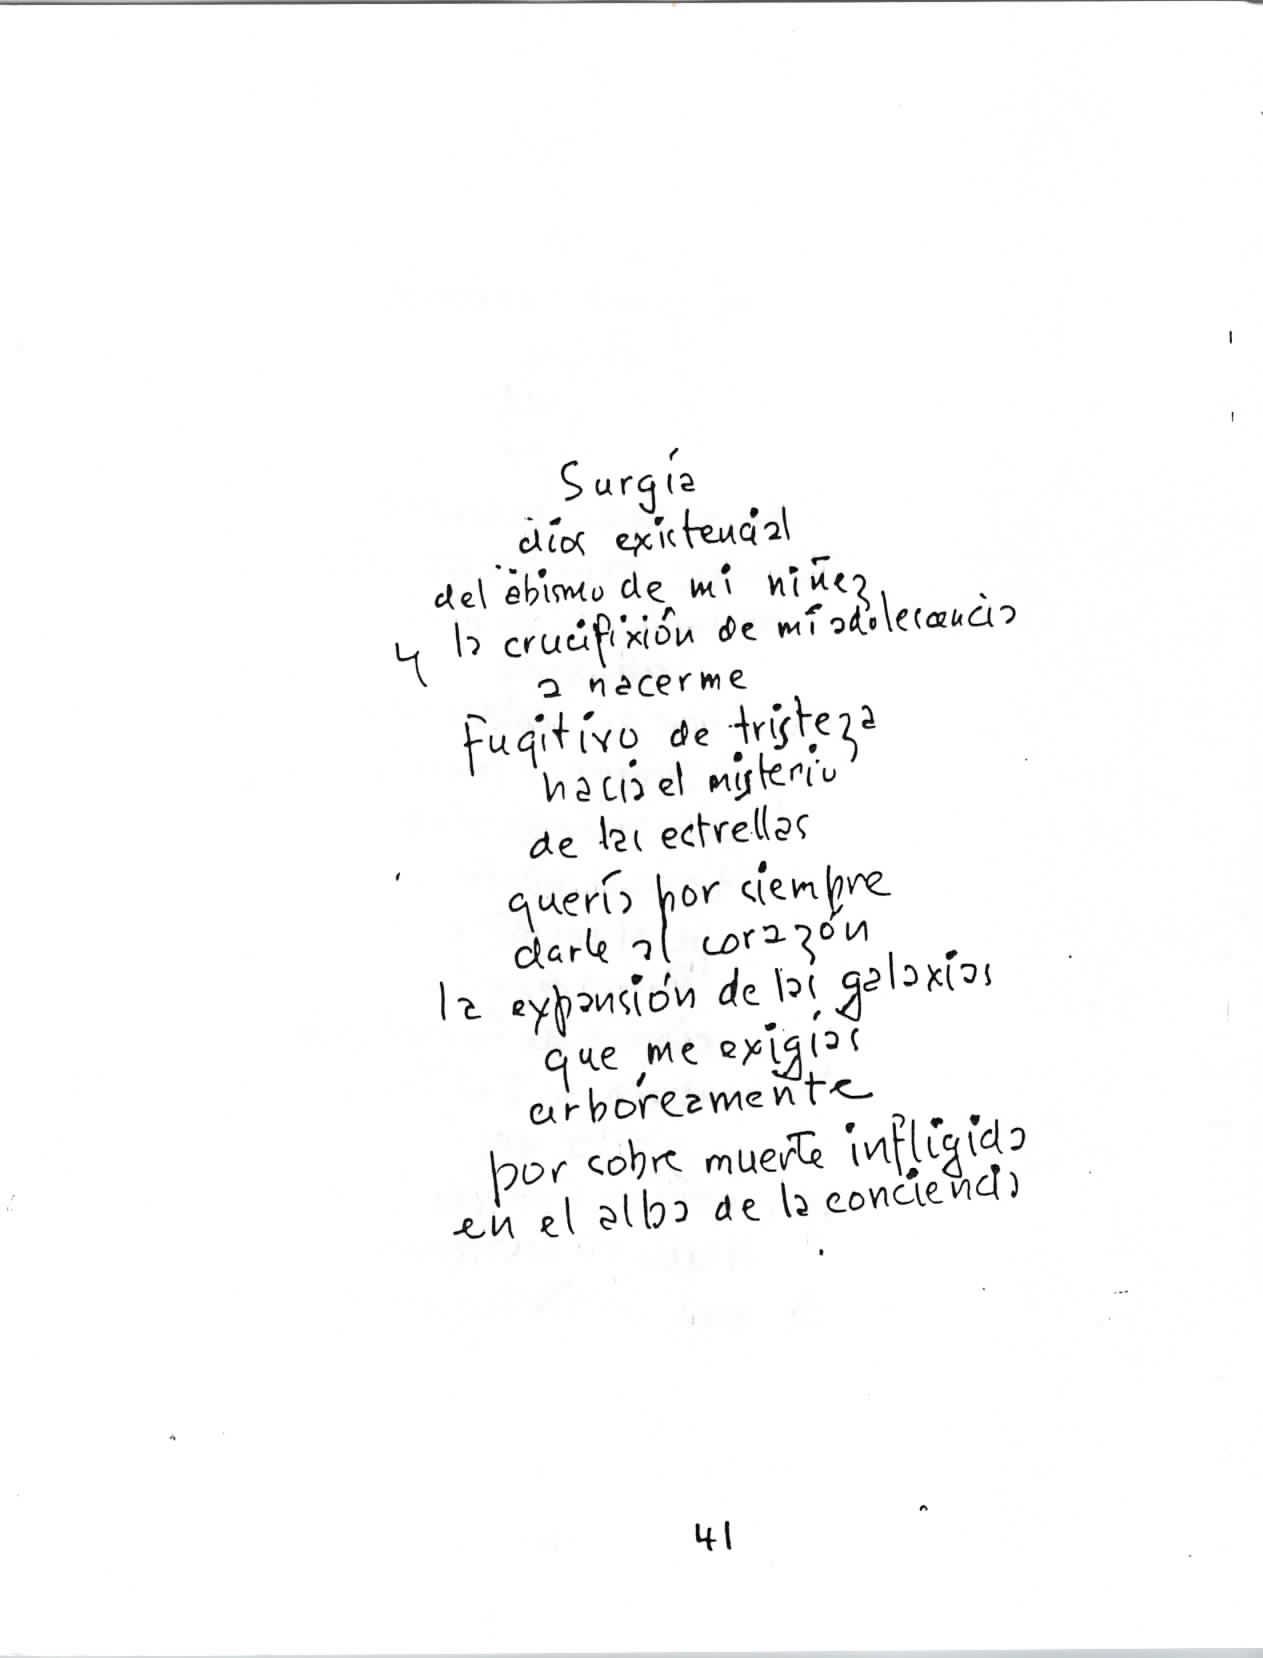 Surgía
dios existencial
del abismo de mi niñez
y la crucifixión de mi adolescencia
a nacerme
Fugitivo de tristeza
hacia el misterio
de las estrellas
quería por siempre
darle al corazón
la expansión de las galaxias
que me exigías
arbóreamente
por sobre muerte infligida
en el alba de la conciencia
41